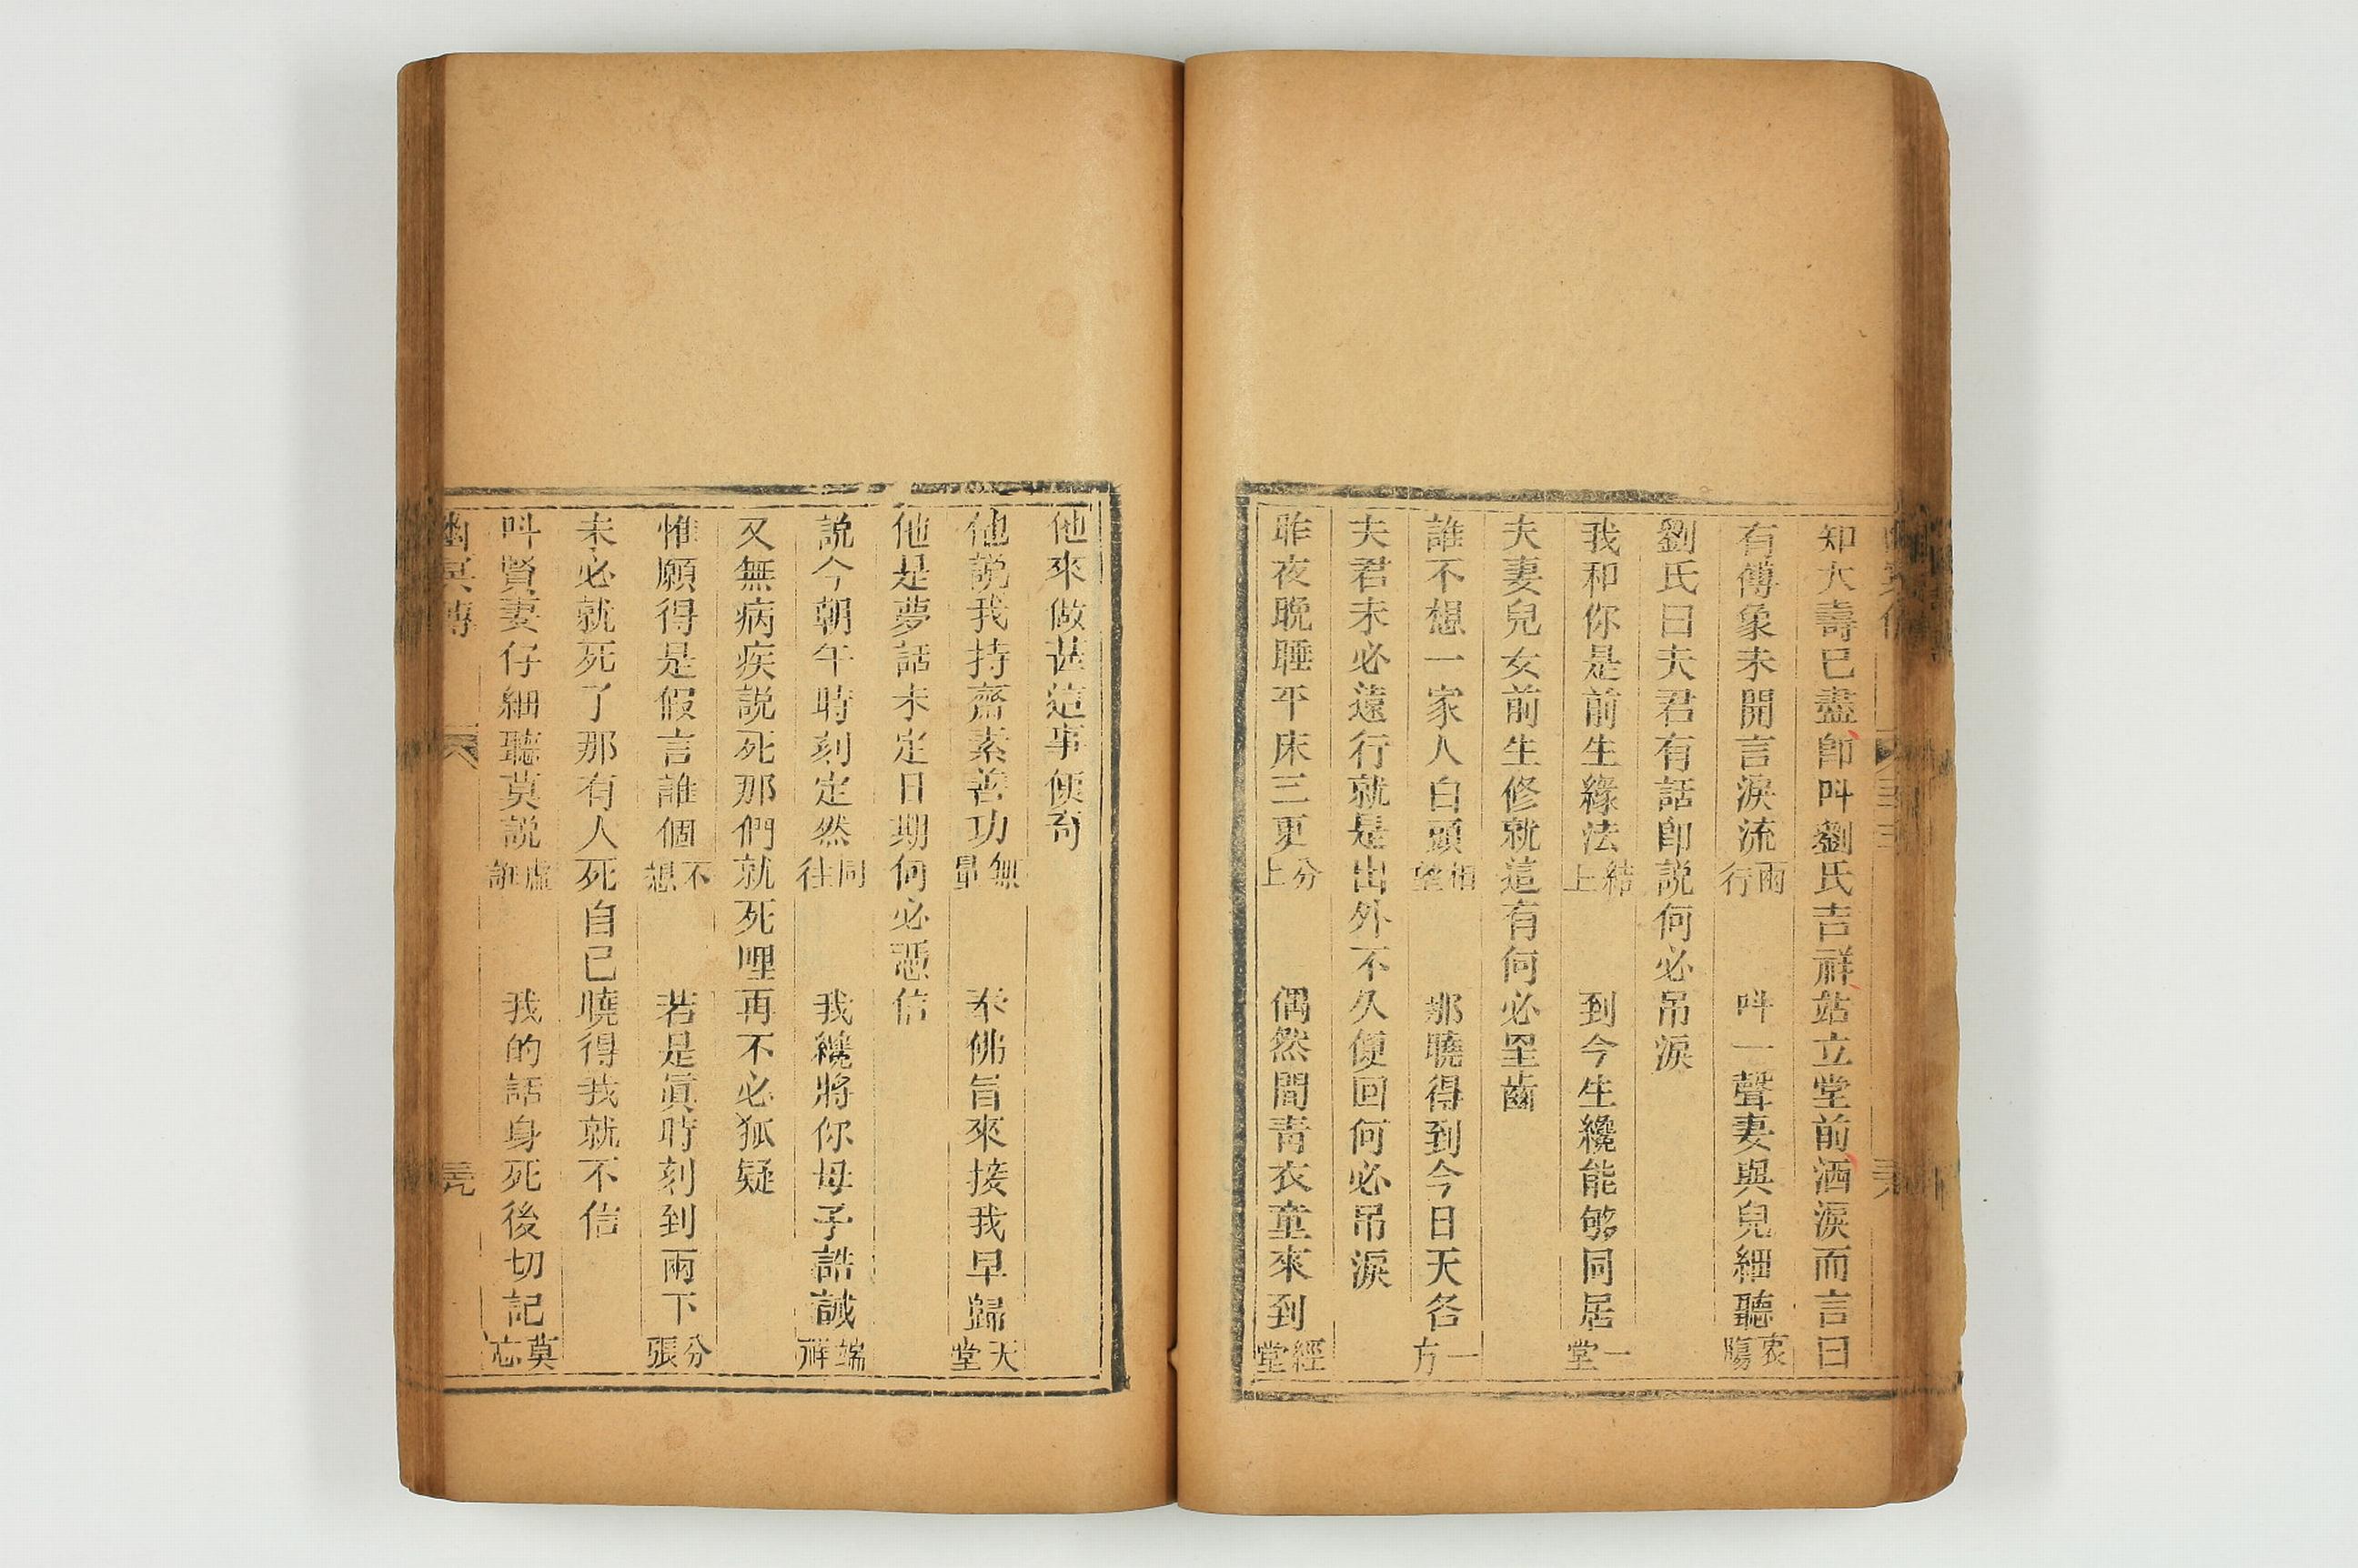 知大壽已盡卽呌劉氏吉祥站立堂前洒淚而言曰
有傅象未開言淚流兩行　呌一聲妻與兒細聽衷腸
劉氏曰夫君有話卽説何必吊淚
我和你是前生緣法結上　到今生纔能够同居一堂
夫妻兒女前生修就這有何必罣齒
誰不想一家人白頭相望　那曉得到今日天各一方
夫君未必遠行就是出外不久便回何必吊淚
昨夜晚睡平床三更分上　偶然間靑衣童來到經堂
他來做甚這事便奇
他説我持齋素善功無量　奉佛旨來接我早歸天堂
他是夢話未定日期何必憑信
説今朝午時刻定然同往　我纔將你母子誥誡端祥
又無病疾説死那們就死哩再不必狐疑
惟願得是假言誰個不想　若是眞時刻到兩下分張
未必就死了那有人死自己曉得我就不信
呌賢妻仔細聽莫説虛誑　我的話身死後切記莫忘
幽冥傳